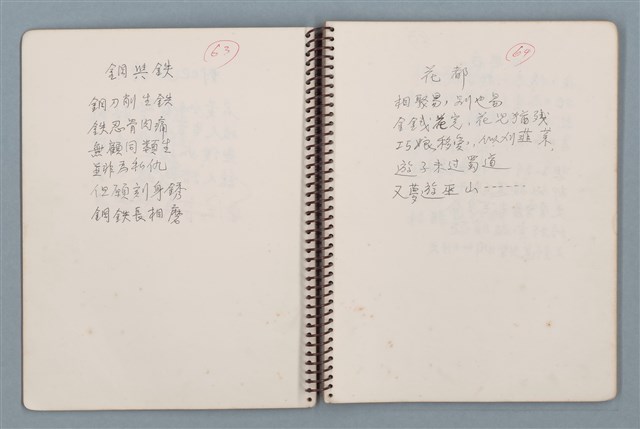 63
鋼與鉄
鋼刀削生鉄
鉄忍骨肉痛
無顧同類生
並非為私仇
但願刻身銹
鋼鉄長相磨
64
花都
相聚易，別也易
金錢花完，花兒猶殘
巧娘移愛，似刈韮菜
遊子未过蜀道
又夢遊巫山------